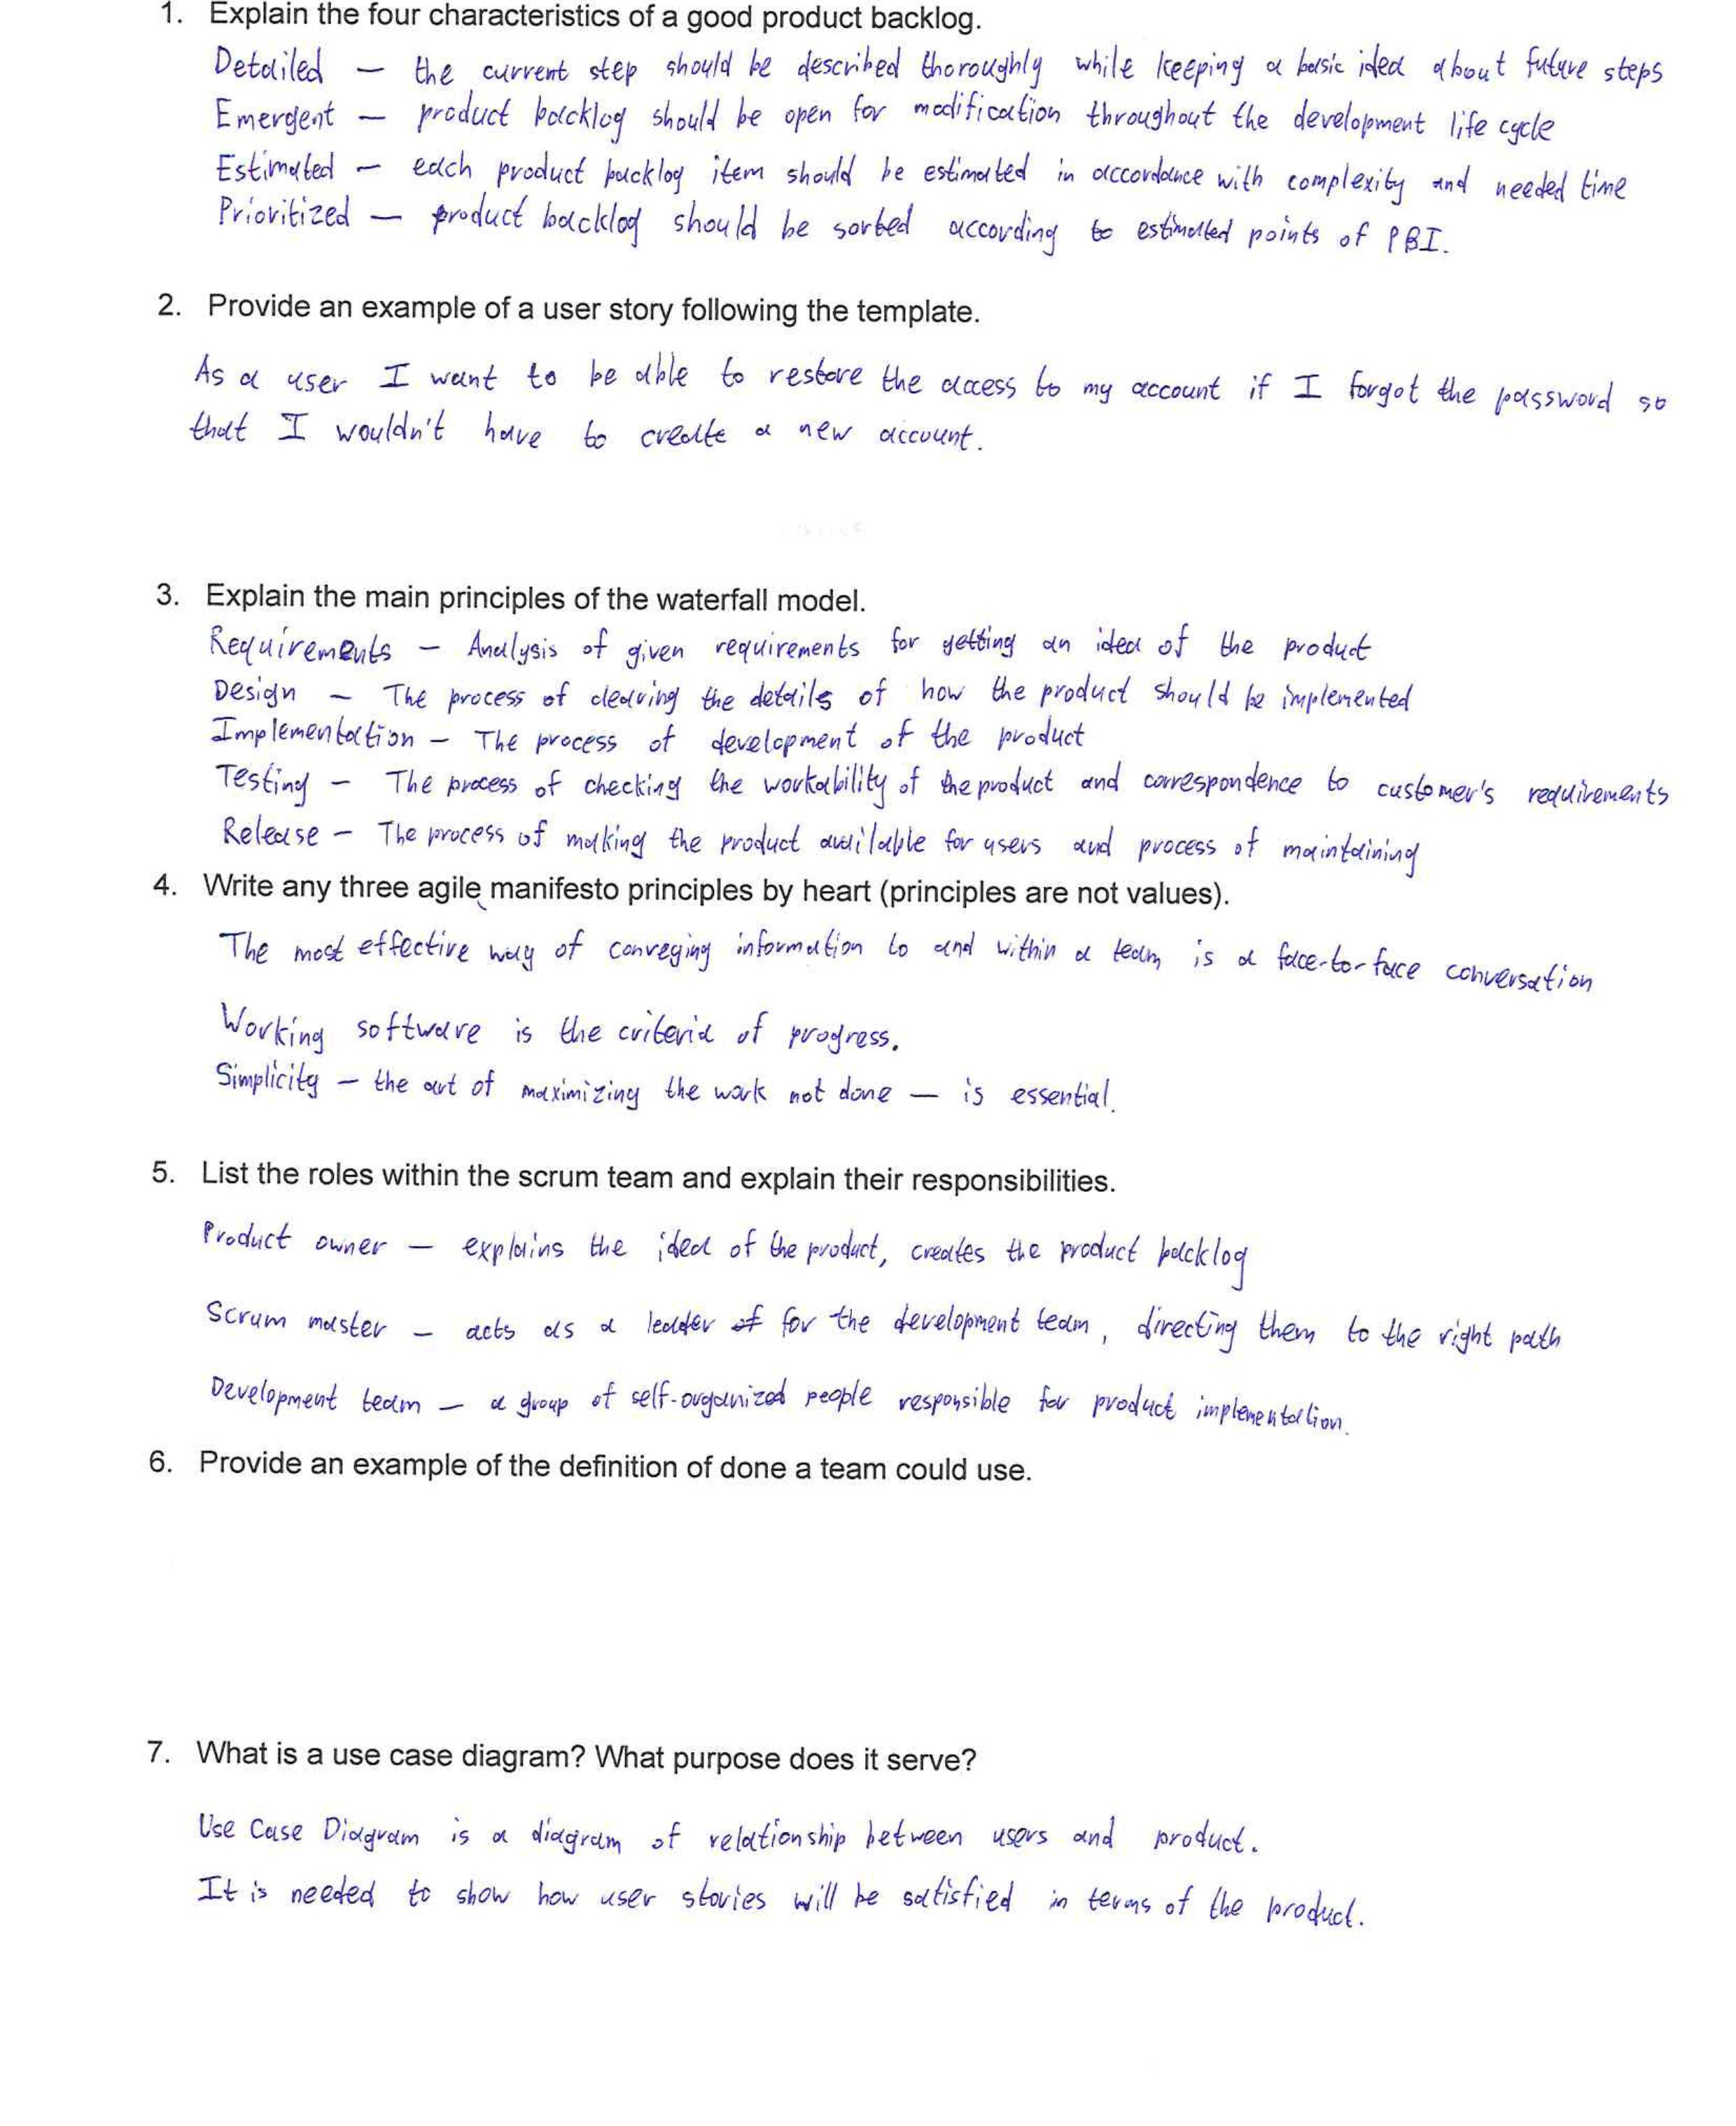 1. Explain the four characteristics of a good product backlog.
Detailed — the current step should be described thoroughly while keeping a basic idea about future steps
Emergent — product backlog should be open for modification throughout the development life cycle
Estimated — each product backlog item should be estimated in accordance with complexity and needed time
Prioritized — product backlog should be sorted according to estimated points of PBI.
2. Provide an example of a user story following the template.
As a user I want to be able to restore the access to my account if I forgot the password so
that I wouldn't have to create a new account.
3. Explain the main principles of the waterfall model.
Requirements – Analysis of given requirements for getting an idea of the product
Design – The process of clearing the details of how the product should be implemented
Implementation – The process of development of the product
Testing – The process of checking the workability of the product and correspondence to customer's requirements
Release – The process of making the product available for users and process of maintaining
4. Write any three agile manifesto principles by heart (principles are not values).
The most effective way of conveging information to and within a team is a face-to-face conversation
Working software is the criteria of progress.
Simplicity – the art of maximizing the work not done — is essential.
5. List the roles within the scrum team and explain their responsibilities.
Product owner — explains the idea of the product, creates the product backlog
Scrum master – acts as a leader of for the development team, directing them to the right path
Development team — a group of self-organized people responsible for product implementation.
6. Provide an example of the definition of done a team could use.
7. What is a use case diagram? What purpose does it serve?
Use Case Diagram is a diagram of relationship between users and product.
It is needed to show how user stories will be satisfied in terms of the product.